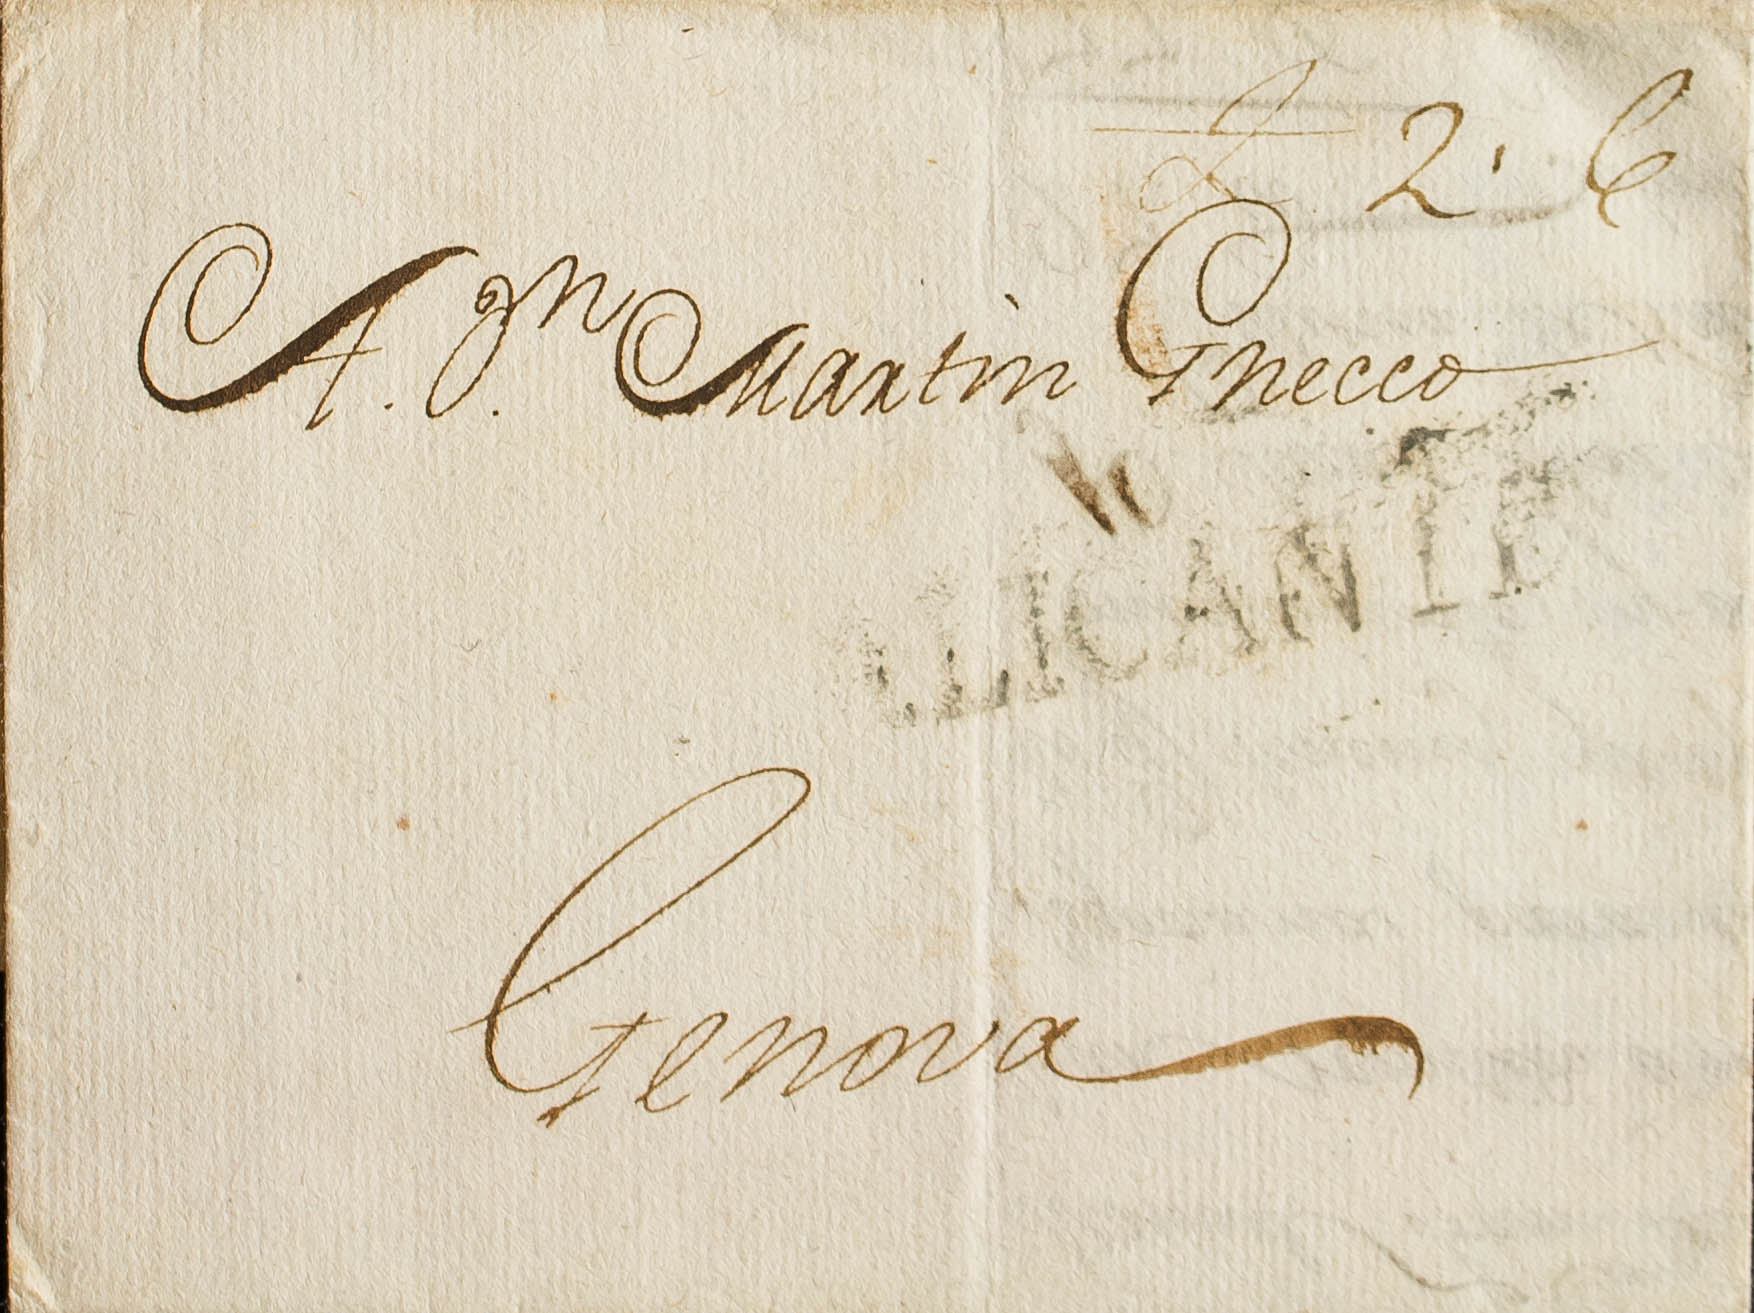 £ 2. 6
A. Jn. Martin Gnecco
ALICANTE
Genova